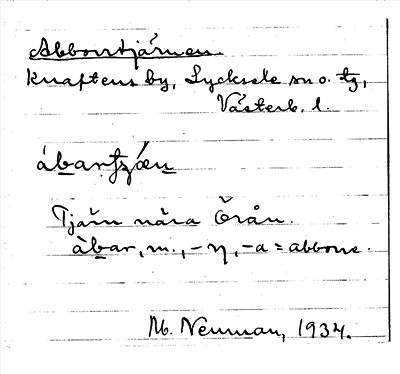 Abborrtjärnen.
Knaftens by, Lycksele sn o. tg,
Västerb. l.
ábarʃʒǽn
Tjärn nära Örån.
àbar, m., -η, -a = abborre.
M. Neuman, 1934.